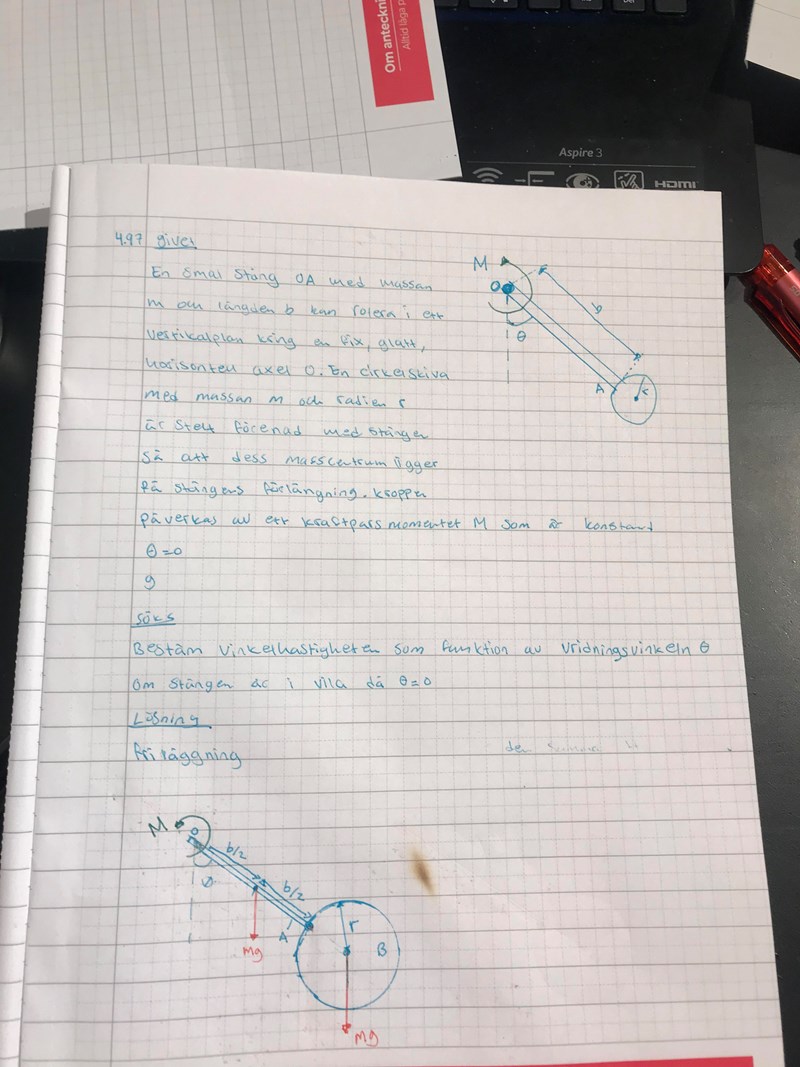 Om anteckni
Alltid låga p
Aspire 3
HDMI
4.97 give:
En smal stång OA med massan
m och längden b kan rotera i ett
vertikalplan kring en fix, glatt,
horisontell axel O. En cirkelskiva
med massan m och radien r
är stelt förenad med stången
så att dess masscentrum ligger
på stångens förlängning. kroppen
påverkas av ett kraftparsmomentet M som är konstant
θ=0
g
M
O
b
θ
A
r
Söks
Bestäm vinkelhastigheten som funktion av vridningsvinkeln θ
om stången är i vila då θ=0
Lösning
friläggning
den
M
O
b/2
b/2
θ
A
r
B
Mg
Mg